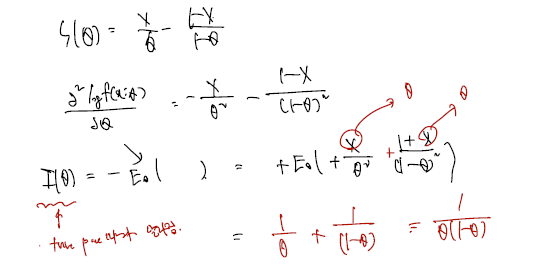 S(θ) = X/θ - (1-X)/(1-θ)
∂² log f(x:θ)/∂θ = - X/θ² - (1-X)/(1-θ)²
θ θ
I(θ) = - E_θ( ) = + E_θ( + X/θ² + (1+X)/(1-θ)² )
true
= 1/θ + 1/(1-θ) = 1/θ(1-θ)